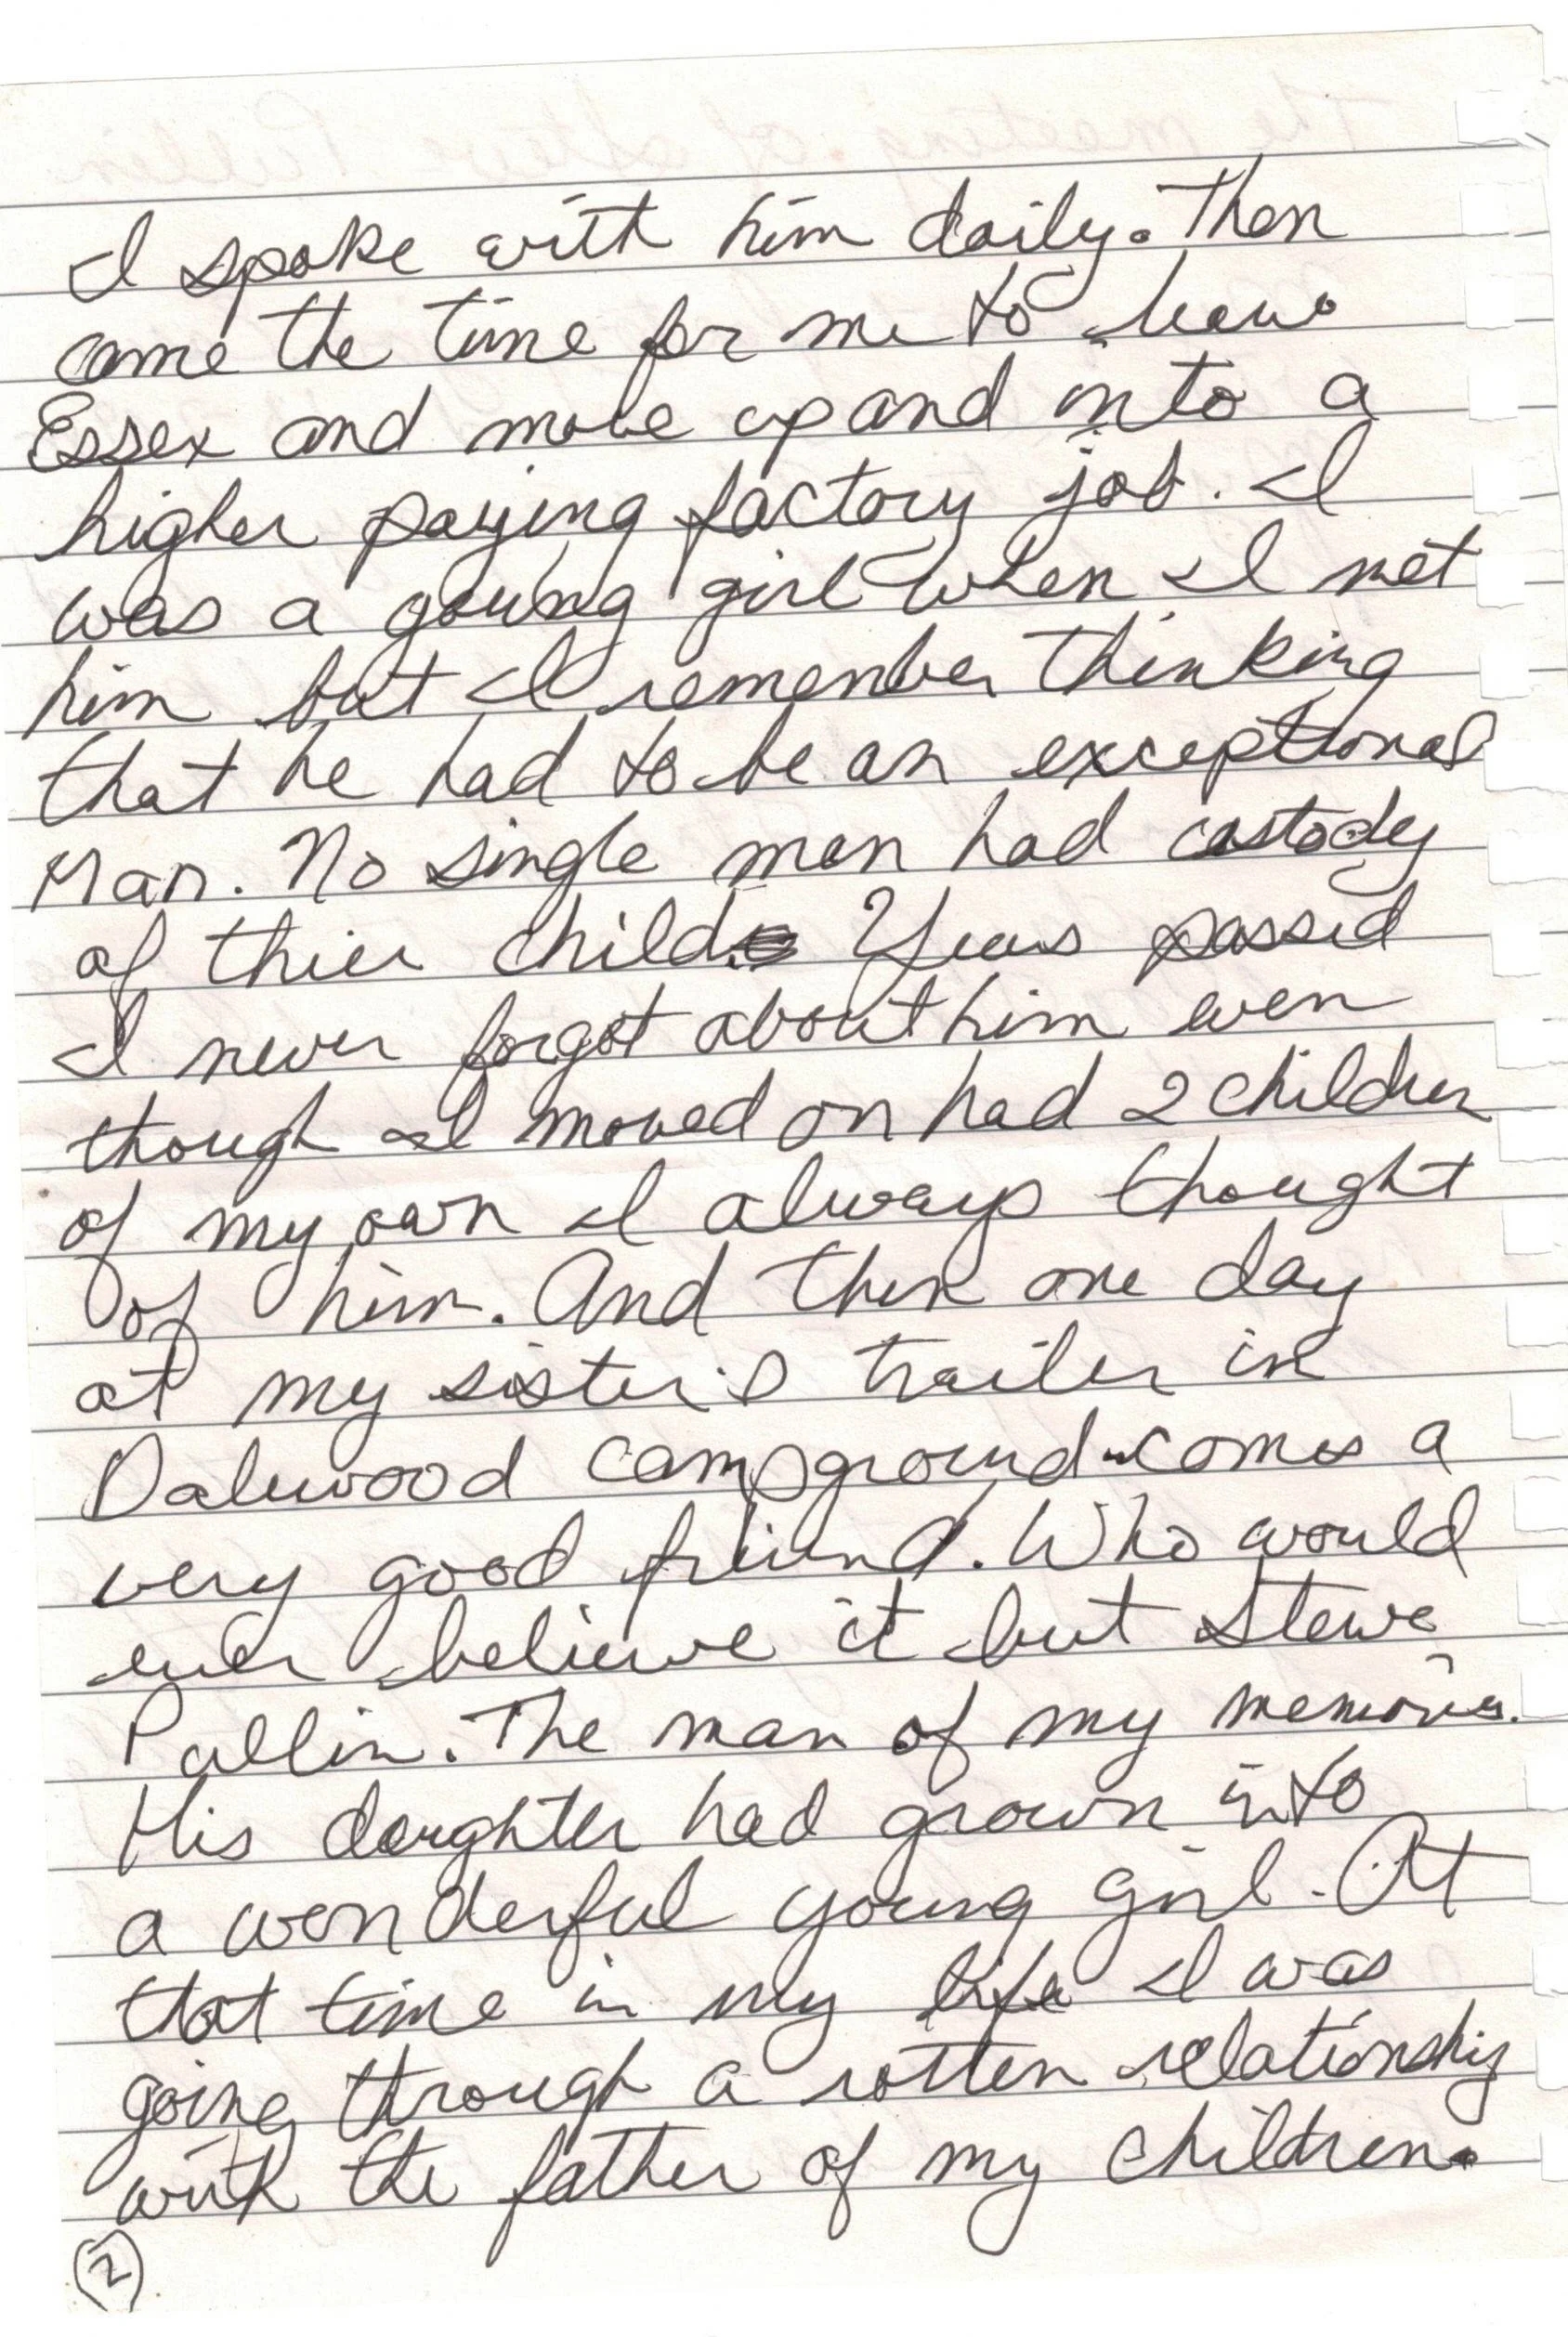 I spoke with him daily. Then
came the time for me to leave
Essex and move up and into a
higher paying factory job. I
was a young girl when I met
him but I remember thinking
that he had to be an exceptional
Man. No single man had custody
of thier child. Years passed
I never forgot about him even
though I moved on had 2 children
of my own I always thought
of him. And then one day
at my sister's trailer in
Dalewood campground comes a
very good friend. Who would
ever believe it but Steve
Pullin. The man of my memories.
His daughter had grown into
a wonderful young girl. At
that time in my life I was
going through a rotten relationship
with the father of my children.
2